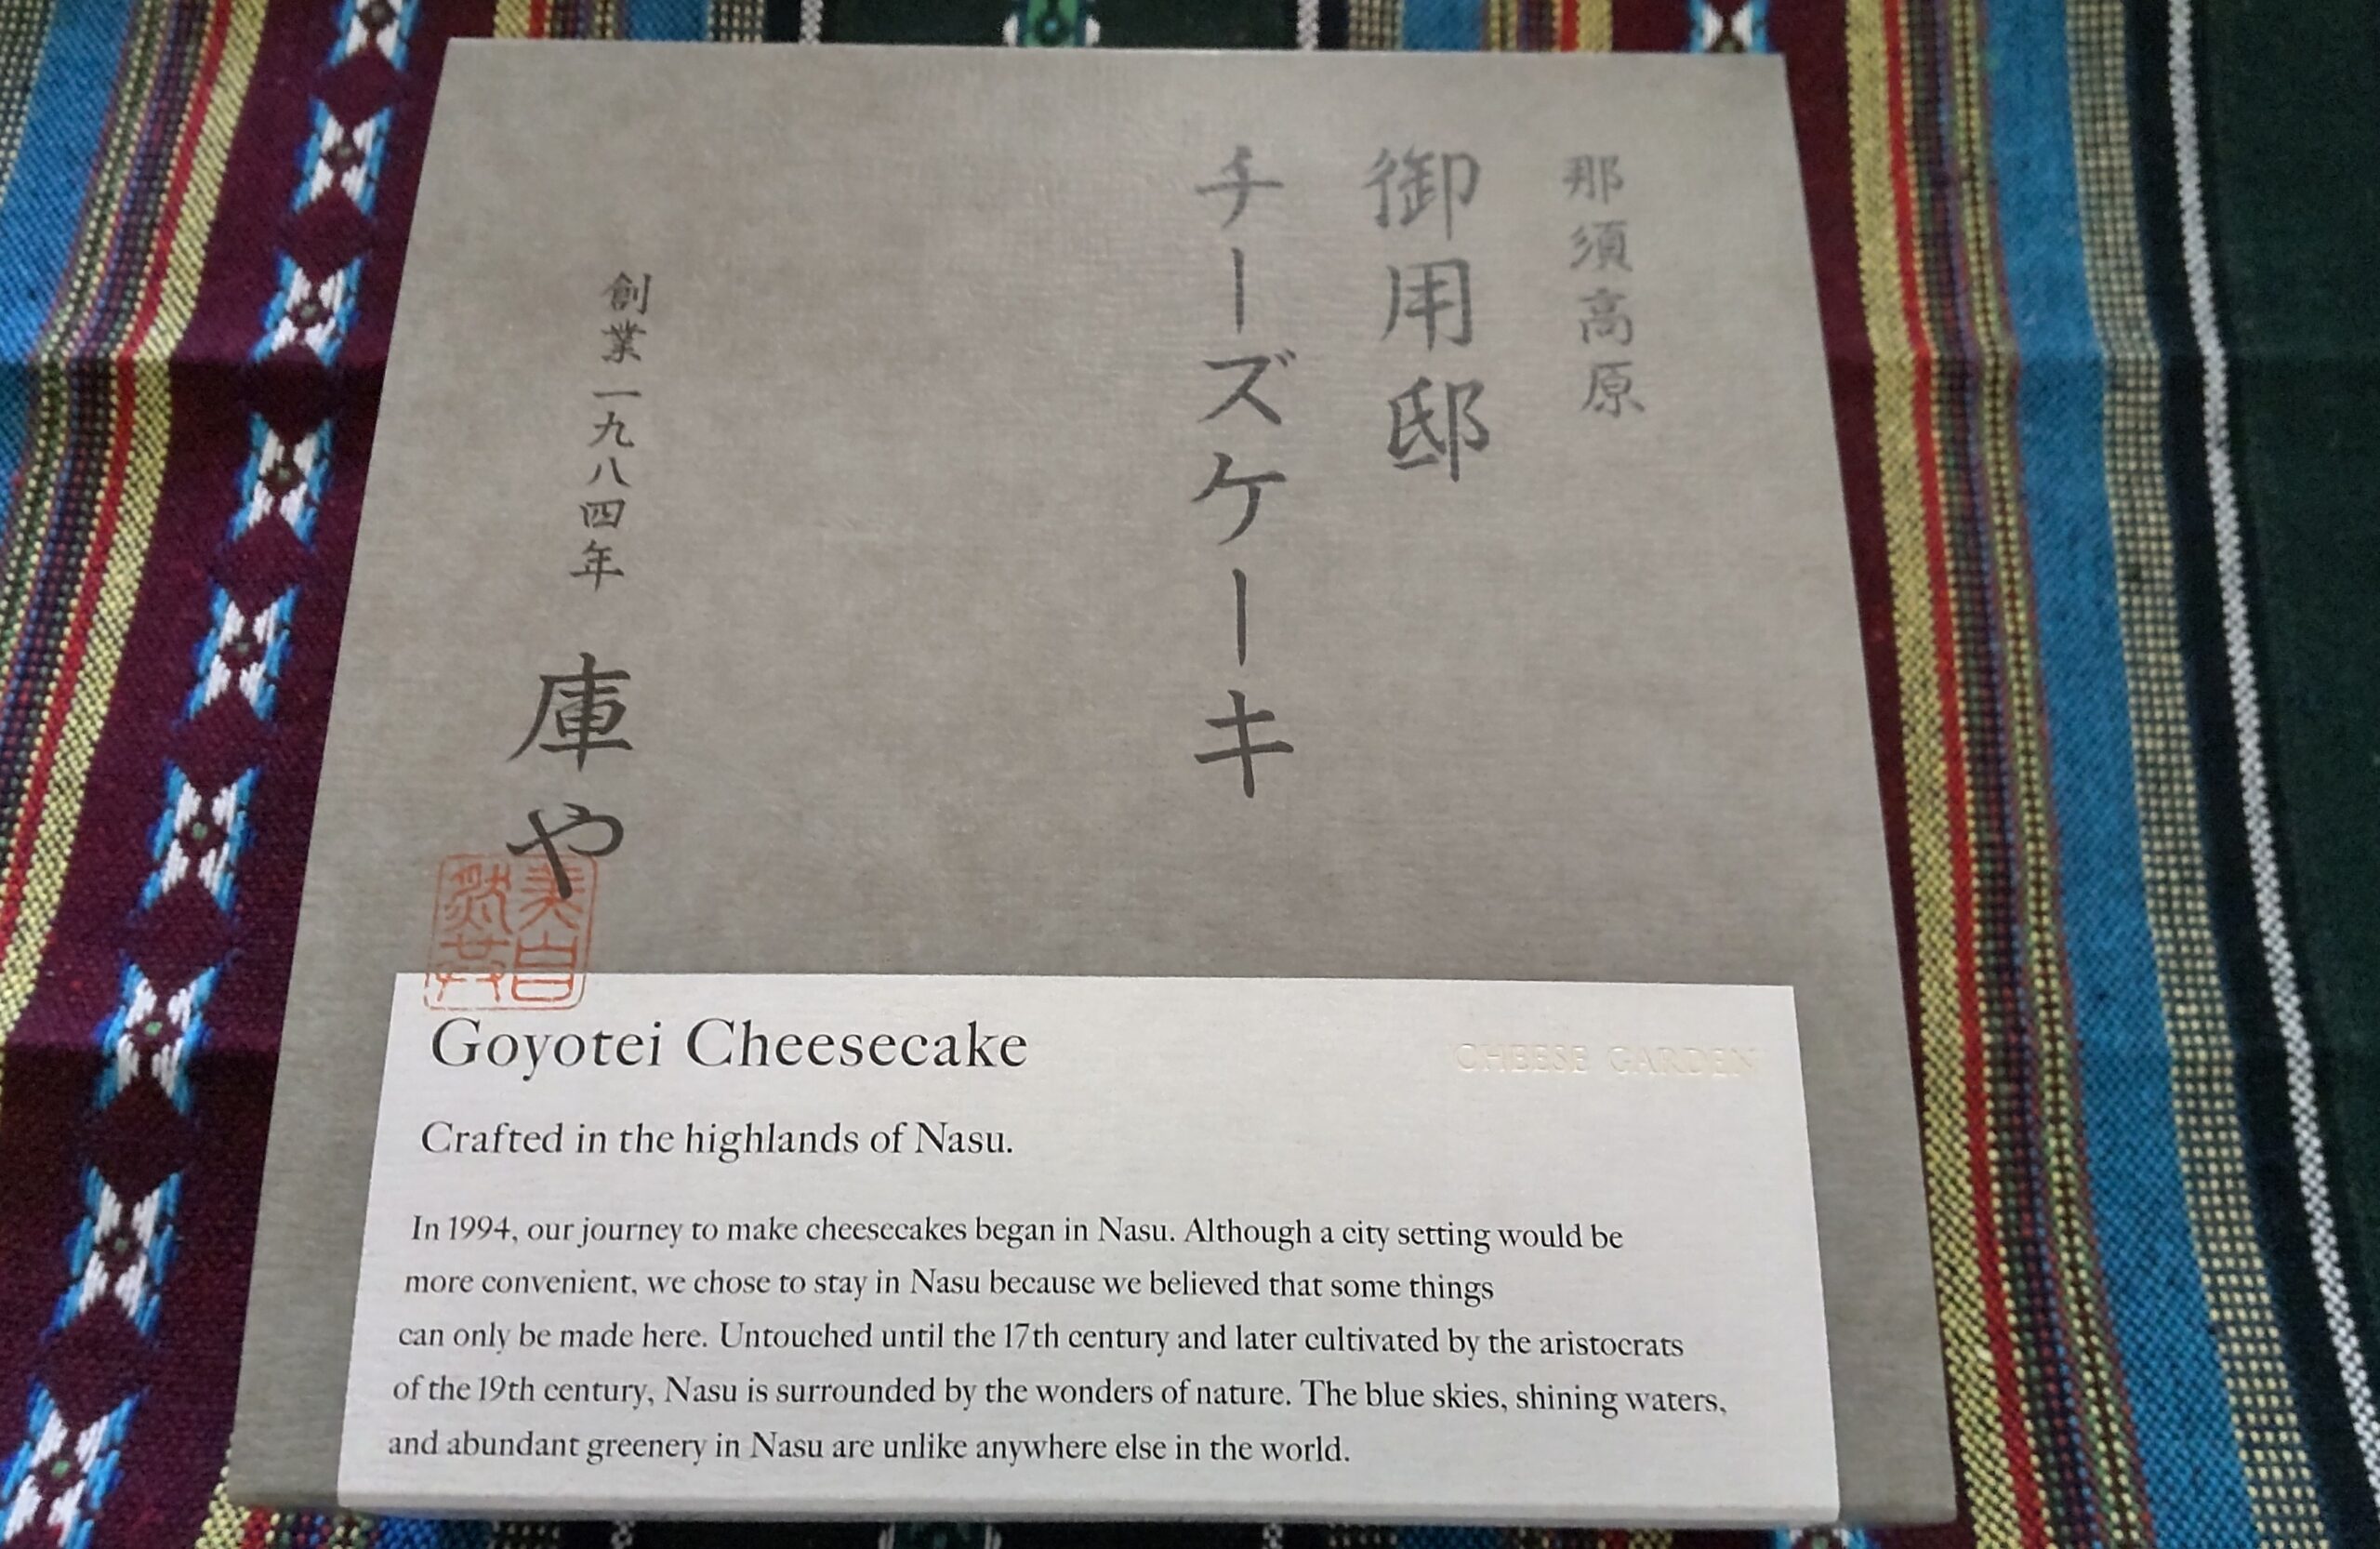 那須高原
御用邸
チーズケーキ
創業一九八四年 庫や
Goyotei Cheesecake
CHEESE GARDEN
Crafted in the highlands of Nasu.
In 1994, our journey to make cheesecakes began in Nasu. Although a city setting would be
more convenient, we chose to stay in Nasu because we believed that some things
can only be made here. Untouched until the 17th century and later cultivated by the aristocrats
of the 19th century, Nasu is surrounded by the wonders of nature. The blue skies, shining waters,
and abundant greenery in Nasu are unlike anywhere else in the world.